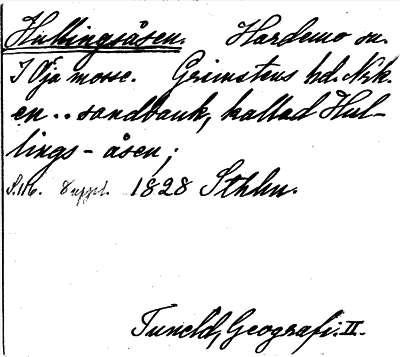 Hullingsåsen. Hardemo sn.
I Öja mosse. Grimstens hd. Nrk.
en .. sandbank, kallad Hul-
lings-åsen;
S. 116. 8 uppl. 1828 Sthlm.
Tuneld, Geografi. II.